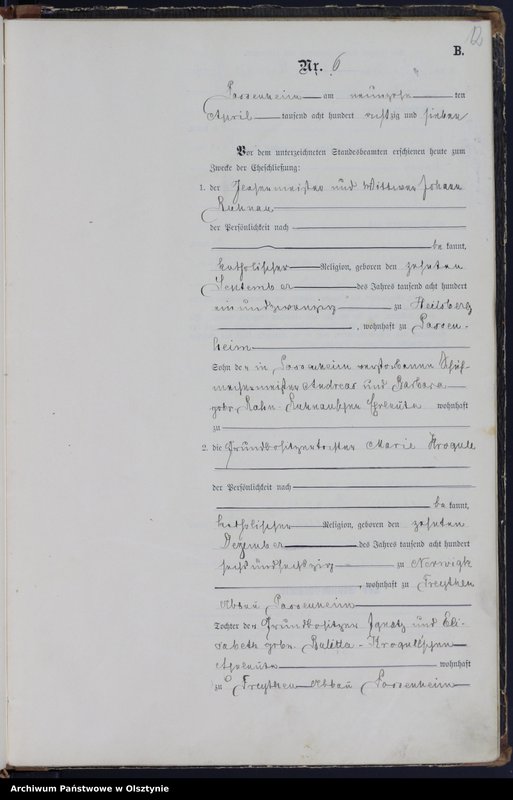 12
B.
Nr. 6
Passenheim am neunzehn ten
April tausend acht hundert achtzig und sieben
Vor dem unterzeichneten Standesbeamten erschienen heute zum
Zwecke der Eheschließung:
1. der Glasermeister und Wittwer Johann
Kuhnau
der Persönlichkeit nach
be kannt,
katholischer Religion, geboren den zehnten
September des Jahres tausend acht hundert
ein und zwanzig zu Heilsberg
, wohnhaft zu Passen-
heim
Sohn der in Passenheim verstorbenen Schuh-
machermeister Andreas und Barbara
gebr. Kuhnauschen Eheleute wohnhaft
zu
2. die Grundbesitzertochter Marie Krogull
der Persönlichkeit nach
be kannt,
katholischer Religion, geboren den zehnten
Dezember des Jahres tausend acht hundert
sechs und sechszig zu Nerwigk
, wohnhaft zu Freythen
Abbau Passenheim
Tochter der Grundbesitzer Ignatz und Eli-
sabeth gebr. Balitta - Krogullschen
Eheleute wohnhaft
zu Freythen Abbau Passenheim
Archiwum Państwowe w Olsztynie